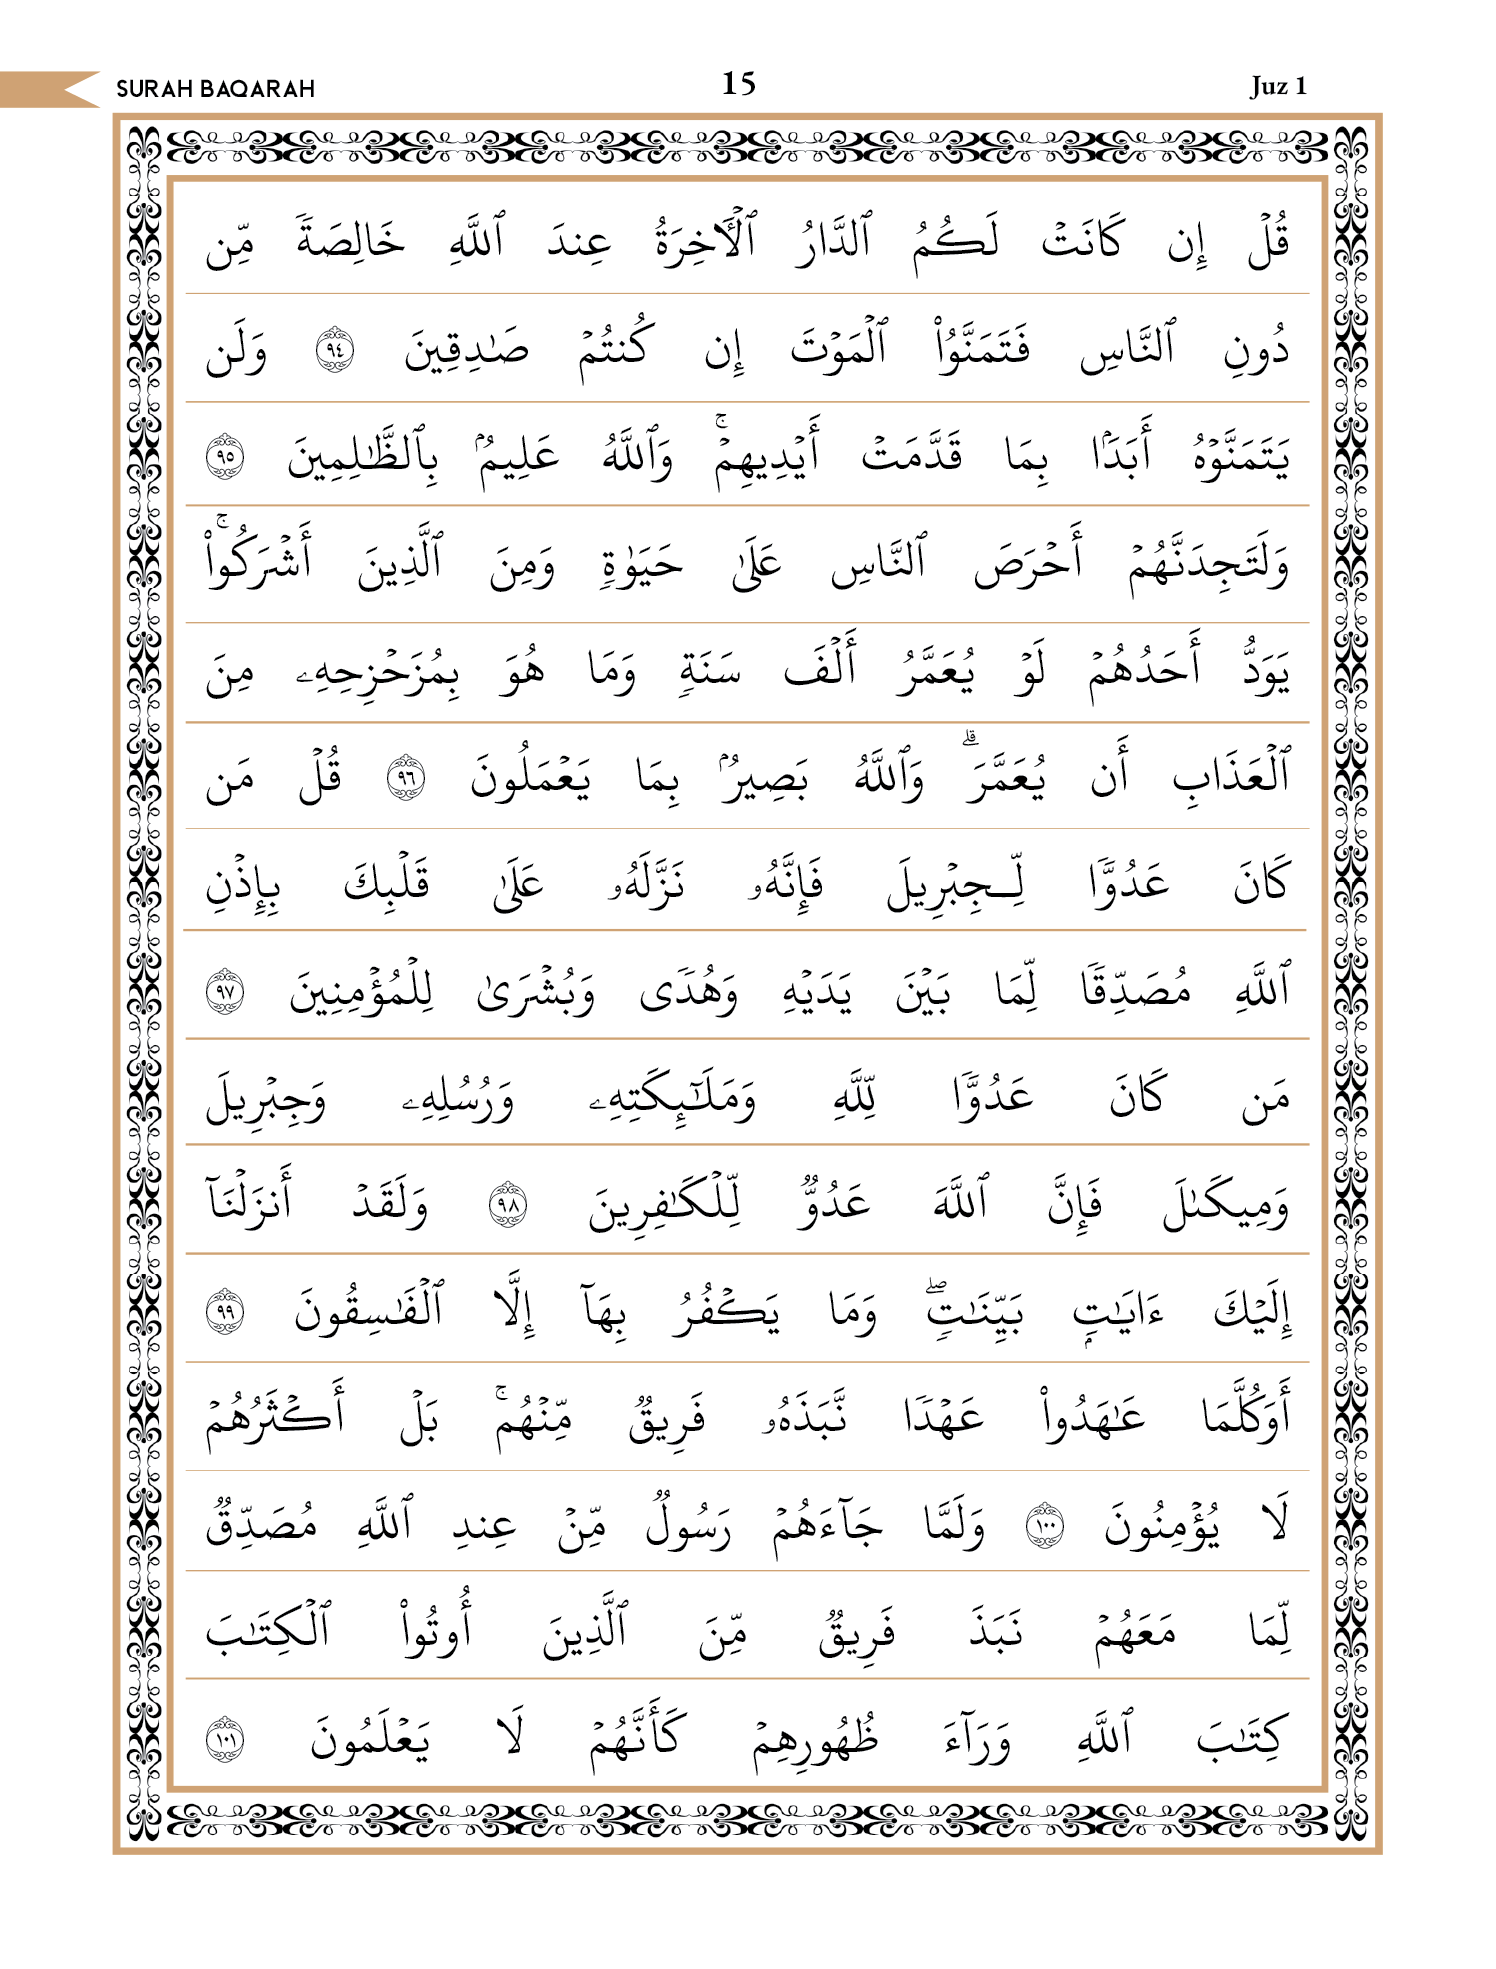 SURAH BAQARAH 15 Juz 1
قُلۡ إِن كَانَتۡ لَكُمُ ٱلدَّارُ ٱلۡأٓخِرَةُ عِندَ ٱللَّهِ خَالِصَةٗ مِّن
دُونِ ٱلنَّاسِ فَتَمَنَّوُاْ ٱلۡمَوۡتَ إِن كُنتُمۡ صَٰدِقِينَ ٩٤ وَلَن
يَتَمَنَّوۡهُ أَبَدَۢا بِمَا قَدَّمَتۡ أَيۡدِيهِمۡۚ وَٱللَّهُ عَلِيمُۢ بِٱلظَّٰلِمِينَ ٩٥
وَلَتَجِدَنَّهُمۡ أَحۡرَصَ ٱلنَّاسِ عَلَىٰ حَيَوٰةٖ وَمِنَ ٱلَّذِينَ أَشۡرَكُواْۚ
يَوَدُّ أَحَدُهُمۡ لَوۡ يُعَمَّرُ أَلۡفَ سَنَةٖ وَمَا هُوَ بِمُزَحۡزِحِهِۦ مِنَ
ٱلۡعَذَابِ أَن يُعَمَّرَۗ وَٱللَّهُ بَصِيرُۢ بِمَا يَعۡمَلُونَ ٩٦ قُلۡ مَن
كَانَ عَدُوّٗا لِّـجِبۡرِيلَ فَإِنَّهُۥ نَزَّلَهُۥ عَلَىٰ قَلۡبِكَ بِإِذۡنِ
ٱللَّهِ مُصَدِّقٗا لِّمَا بَيۡنَ يَدَيۡهِ وَهُدٗى وَبُشۡرَىٰ لِلۡمُؤۡمِنِينَ ٩٧
مَن كَانَ عَدُوّٗا لِّلَّهِ وَمَلَٰٓئِكَتِهِۦ وَرُسُلِهِۦ وَجِبۡرِيلَ
وَمِيكَىٰلَ فَإِنَّ ٱللَّهَ عَدُوّٞ لِّلۡكَٰفِرِينَ ٩٨ وَلَقَدۡ أَنزَلۡنَآ
إِلَيۡكَ ءَايَٰتِۭ بَيِّنَٰتٖۖ وَمَا يَكۡفُرُ بِهَآ إِلَّا ٱلۡفَٰسِقُونَ ٩٩
أَوَكُلَّمَا عَٰهَدُواْ عَهۡدٗا نَّبَذَهُۥ فَرِيقٞ مِّنۡهُمۚ بَلۡ أَكۡثَرُهُمۡ
لَا يُؤۡمِنُونَ ١٠٠ وَلَمَّا جَآءَهُمۡ رَسُولٞ مِّنۡ عِندِ ٱللَّهِ مُصَدِّقٞ
لِّمَا مَعَهُمۡ نَبَذَ فَرِيقٞ مِّنَ ٱلَّذِينَ أُوتُواْ ٱلۡكِتَٰبَ
كِتَٰبَ ٱللَّهِ وَرَآءَ ظُهُورِهِمۡ كَأَنَّهُمۡ لَا يَعۡلَمُونَ ١٠١